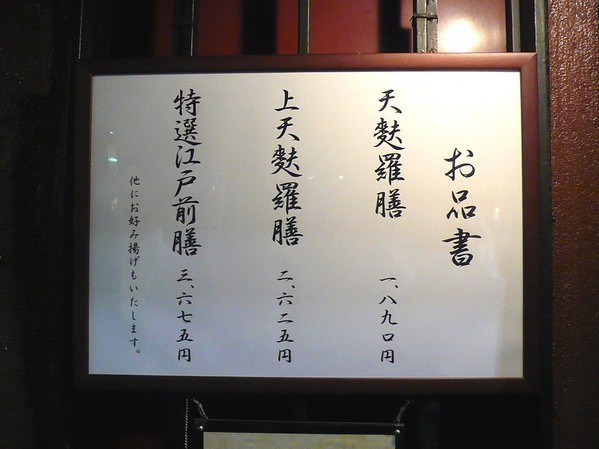 お品書
天麩羅膳 一、八九〇円
上天麩羅膳 二、六二五円
特選江戸前膳 三、六七五円
他にお好み揚げもいたします。